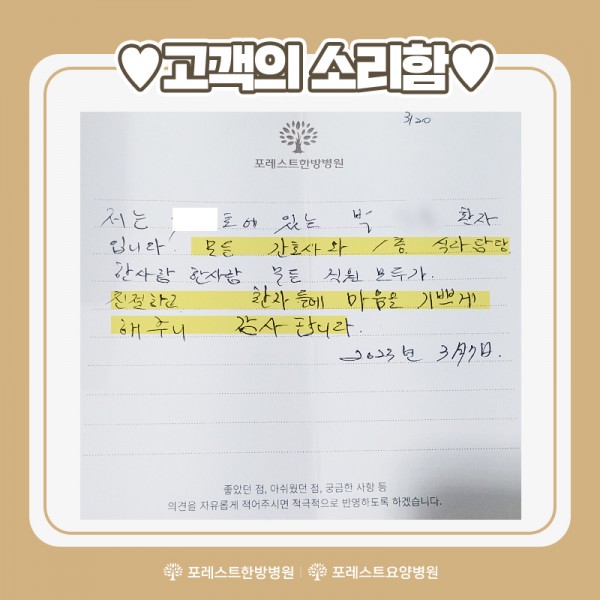 ♥고객의 소리함♥
3/20
포레스트한방병원
저는 호에 있는 박 환자
입니다. 모든 간호사와 1층 식라담당.
한사람 한사람 모든 직원 모두가.
친절하고 환자들에 마음을 기쁘게
해주니 감사합니다.
2023년 3月7日.
좋았던 점, 아쉬웠던 점, 궁금한 사항 등
의견을 자유롭게 적어주시면 적극적으로 반영하도록 하겠습니다.
포레스트한방병원 | 포레스트요양병원